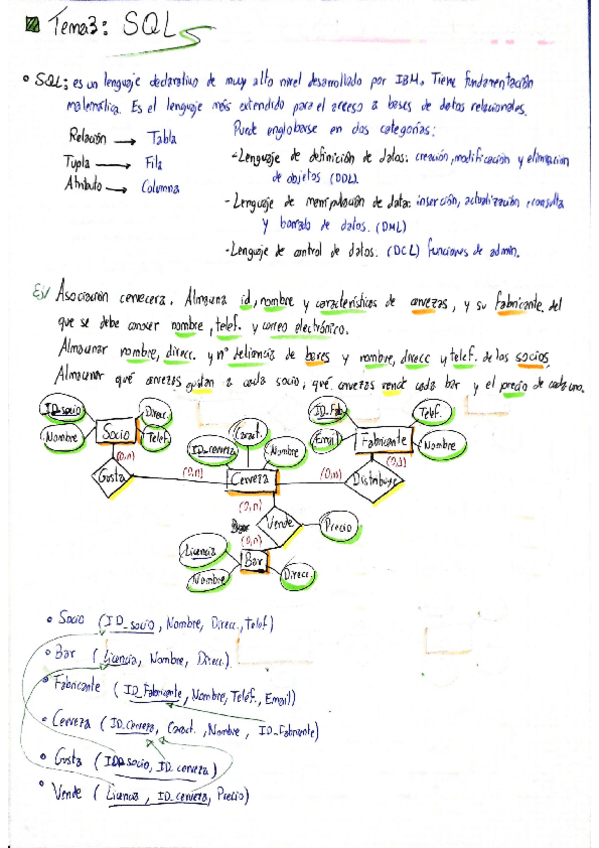 Tema 3: SQL
SQL: es un lenguaje declarativo de muy alto nivel desarrollado por IBM. Tiene fundamentación
matemática. Es el lenguaje más extendido para el acceso a bases de datos relacionales.
Relación → Tabla
Tupla → Fila
Atributo → Columna
Puede englobarse en dos categorías:
- Lenguaje de definición de datos: creación, modificación y eliminación
de objetos (DDL).
- Lenguaje de manipulación de data: inserción, actualización, consulta
y borrado de datos. (DML)
- Lenguaje de control de datos. (DCL) funciones de admin.
Ej/ Asociación cervecera. Almacena id, nombre y características de cervezas, y su fabricante, del
que se debe conocer nombre, telef. y correo electrónico.
Almacenar nombre, direcc. y nº de licencia de bares y nombre, direcc y telef. de los socios.
Almacenar qué cervezas gustan a cada socio, qué cervezas vende cada bar y el precio de cada una.
ID_socio
Direc.
Nombre
Socio
Telef.
(0,n)
Gusta
(0,n)
ID_cerveza
Caract.
Nombre
Cerveza
(0,n)
ID_Fab.
Telef.
Email
Fabricante
Nombre
(0,1)
Distribuye
(0,n)
Vende
Precio
(0,n)
Licencia
Bar
Nombre
Direcc.
Socio (ID_socio, Nombre, Direcc., Telef)
Bar (Licencia, Nombre, Direcc.)
Fabricante (ID_Fabricante, Nombre, Telef., Email)
Cerveza (ID_Cerveza, Caract., Nombre, ID_Fabricante)
Gusta (ID_socio, ID_cerveza)
Vende (Licencia, ID_cerveza, Precio)